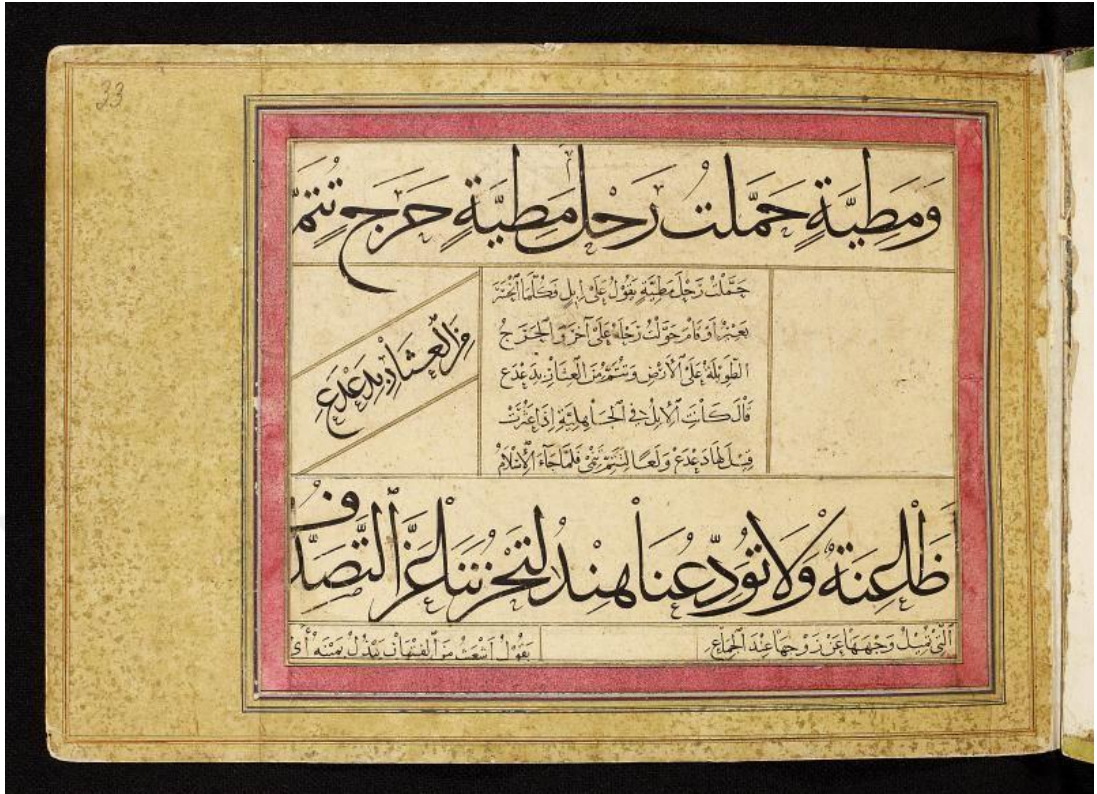 33
وَمَطِيَّةٍ حَمَّلْتُ رَحْلَ مَطِيَّةٍ حَرَجٍ تُتِمُّ
حَمَّلْتُ رَحْلَ مَطِيَّةٍ يَقُولُ عَلَى إِبِلٍ فَكُلَّمَا
بَعِيرٌ أَوْ قَامَ حَوَّلْتُ رَحْلَهُ عَلَى آخَرَ وَالْحَرَجُ
الطَّوِيلَةُ عَلَى الْأَرْضِ وَتُتَمُّ مِنَ الْعِثَارِ بِدَعْدَعِ
قَالَ كَانَتِ الْإِبِلُ فِي الْجَاهِلِيَّةِ إِذَا عَثَرَتْ
قِيلَ لَهَا دَعْدَعْ وَلَعًا فَلَمَّا جَاءَ الْإِسْلَامُ
مِنَ الْعِثَارِ بِدَعْدَعِ
ظَاعِنَةٌ وَلَا تُوَدِّعُنَا هِنْدُ لِتَحْزُنَنَا لَعَزَّ التَّصَدُّفُ
الَّتِي تُمِيلُ وَجْهَهَا عَنْ زَوْجِهَا عِنْدَ الْجِمَاعِ
يَقُولُ أَشْعَثُ مِنَ الْفِتْيَانِ يَبْذُلُ أَيْ